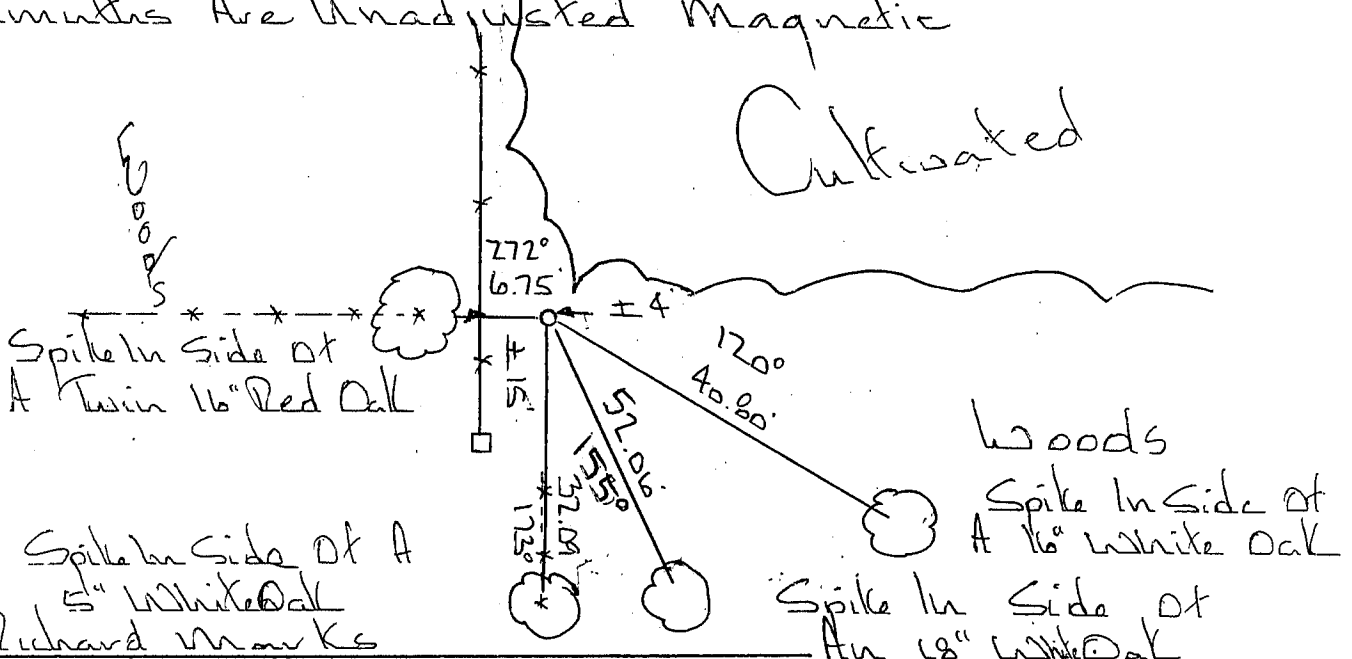 Are Unadjusted Magnetic
Cultivated
Woods
272°
6.75'
± 4'
± 15'
120°
40.80'
52.06'
155°
Spike In Side Of
A Twin 16" Red Oak
Woods
Spike In Side Of
A 16" White Oak
Spike In Side Of A
5" White Oak
Richard Marks
Spike In Side Of
An 18" White Oak